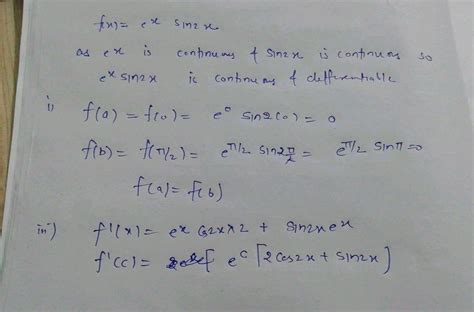 f(x) = e^x sin2x
as e^x is continuous & sin2x is continuous so
e^x sin2x is continuous & differentiable
i) f(a) = f(0) = e^0 sin2(0) = 0
f(b) = f(π/2) = e^π/2 sin2π/2 = e^π/2 sinπ=0
f(a) = f(b)
iii) f'(x) = e^x cos2x×2 + sin2x e^x
f'(c) = e^c [2cos2x + sin2x]